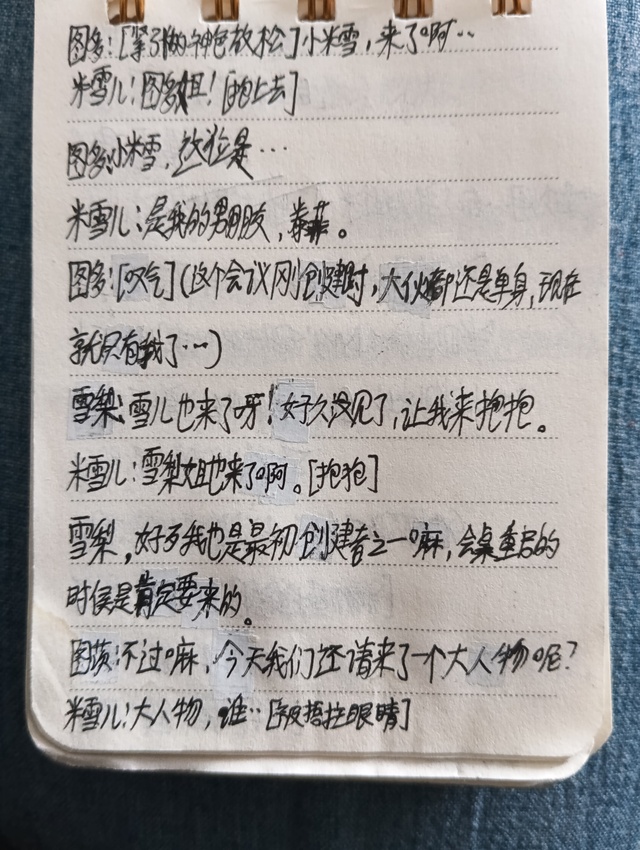 图多:[紧引的神色放松]小米雪，来了啊··
米雪儿:图多姐![抱上去]
图多:小米雪，这位是···
米雪儿:是我的男朋友，。
图多:[叹气](这个会议刚创建时，大伙都还是单身，现在
就只有我了···)
雪梨:雪儿也来了呀!好久没见了，让我来抱抱。
米雪儿:雪梨姐也来了啊。[抱抱]
雪梨，好歹我也是最初创建者之一嘛，会桌重启的
时侯是肯定要来的。
图:不过嘛，今天我们还请来了一个大人物呢?
米雪儿:大人物，谁··[被捂住眼睛]